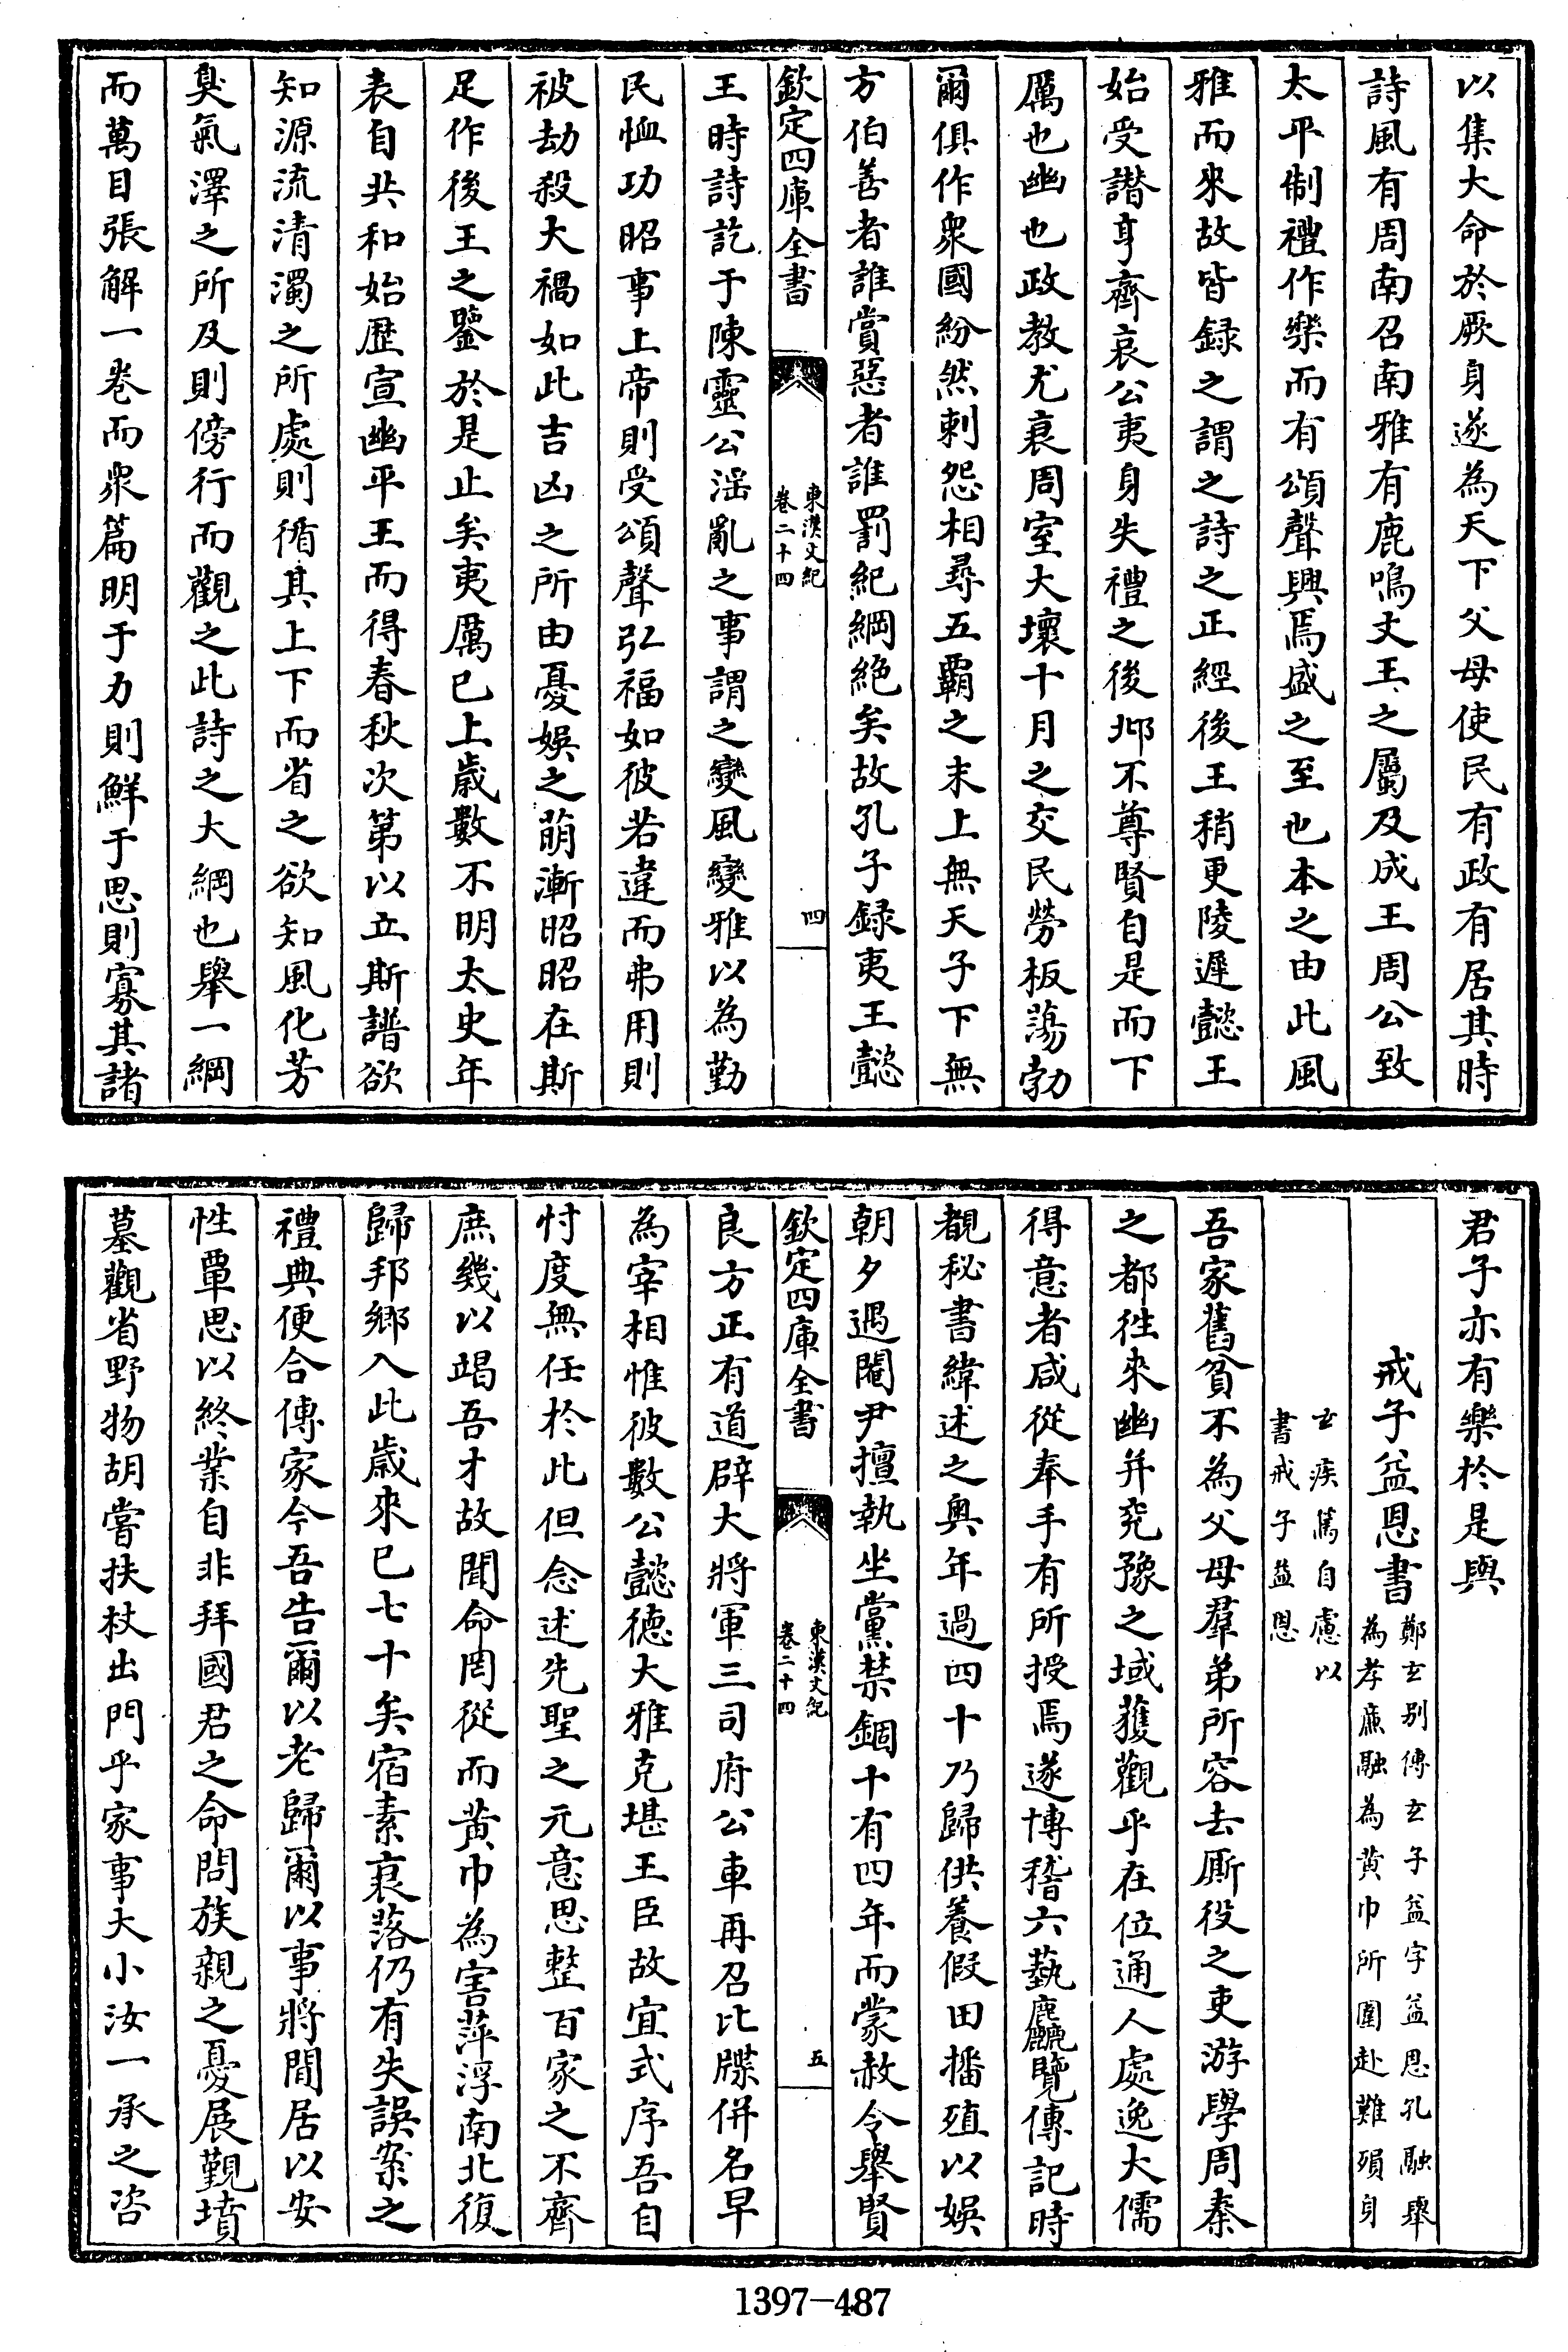 以集大命於厥身遂為天下父母使民有政有居其時
詩風有周南召南雅有鹿鳴文王之屬及成王周公致
太平制禮作樂而有頌聲興焉盛之至也本之由此風
雅而來故皆録之謂之詩之正經後王稍更陵遲懿王
始受譖亨齊哀公夷身失禮之後邶不尊賢自是而下
厲也幽也政教尤衰周室大壞十月之交民勞板蕩勃
爾俱作衆國紛然刺怨相尋五霸之末上無天子下無
方伯善者誰賞惡者誰罰紀綱絶矣故孔子録夷王懿
欽定四庫全書
東漢文紀
卷二十四
四
王時詩訖于陳靈公滛亂之事謂之變風變雅以為勤
民恤功昭事上帝則受頌聲弘福如彼若違而弗用則
被劫殺大禍如此吉凶之所由憂娛之萌漸昭昭在斯
足作後王之鑒於是止矣夷厲已上歲數不明太史年
表自共和始歴宣幽平王而得春秋次第以立斯譜欲
知源流清濁之所處則循其上下而省之欲知風化芳
臭氣澤之所及則傍行而觀之此詩之大綱也舉一綱
而萬目張解一卷而衆篇明于力則鮮于思則寡其諸
君子亦有樂於是與
戒子益恩書
鄭玄别傳玄子益字益恩孔融舉
為孝廉融為黄巾所圍赴難殞身
玄疾篤自慮以
書戒子益恩
吾家舊貧不為父母羣弟所容去厮役之吏游學周秦
之都徃來幽并兖豫之域獲觀乎在位通人處逸大儒
得意者咸從奉手有所授焉遂博稽六藝麤覽傳記時
覩秘書緯述之奥年過四十乃歸供養假田播殖以娛
朝夕遇閹尹擅執坐黨禁錮十有四年而蒙赦令舉賢
欽定四庫全書
東漢文紀
卷二十四
五
良方正有道辟大將軍三司府公車再召比牒併名早
為宰相惟彼數公懿徳大雅克堪王臣故宜式序吾自
忖度無任於此但念述先聖之元意思整百家之不齊
庶幾以竭吾才故聞命罔從而黄巾為害萍浮南北復
歸邦鄉入此歲來已七十矣宿素衰落仍有失誤案之
禮典便合傳家今吾告爾以老歸爾以事將閒居以安
性覃思以終業自非拜國君之命問族親之憂展覲墳
墓觀省野物胡嘗扶杖出門乎家事大小汝一承之咨
1397—487